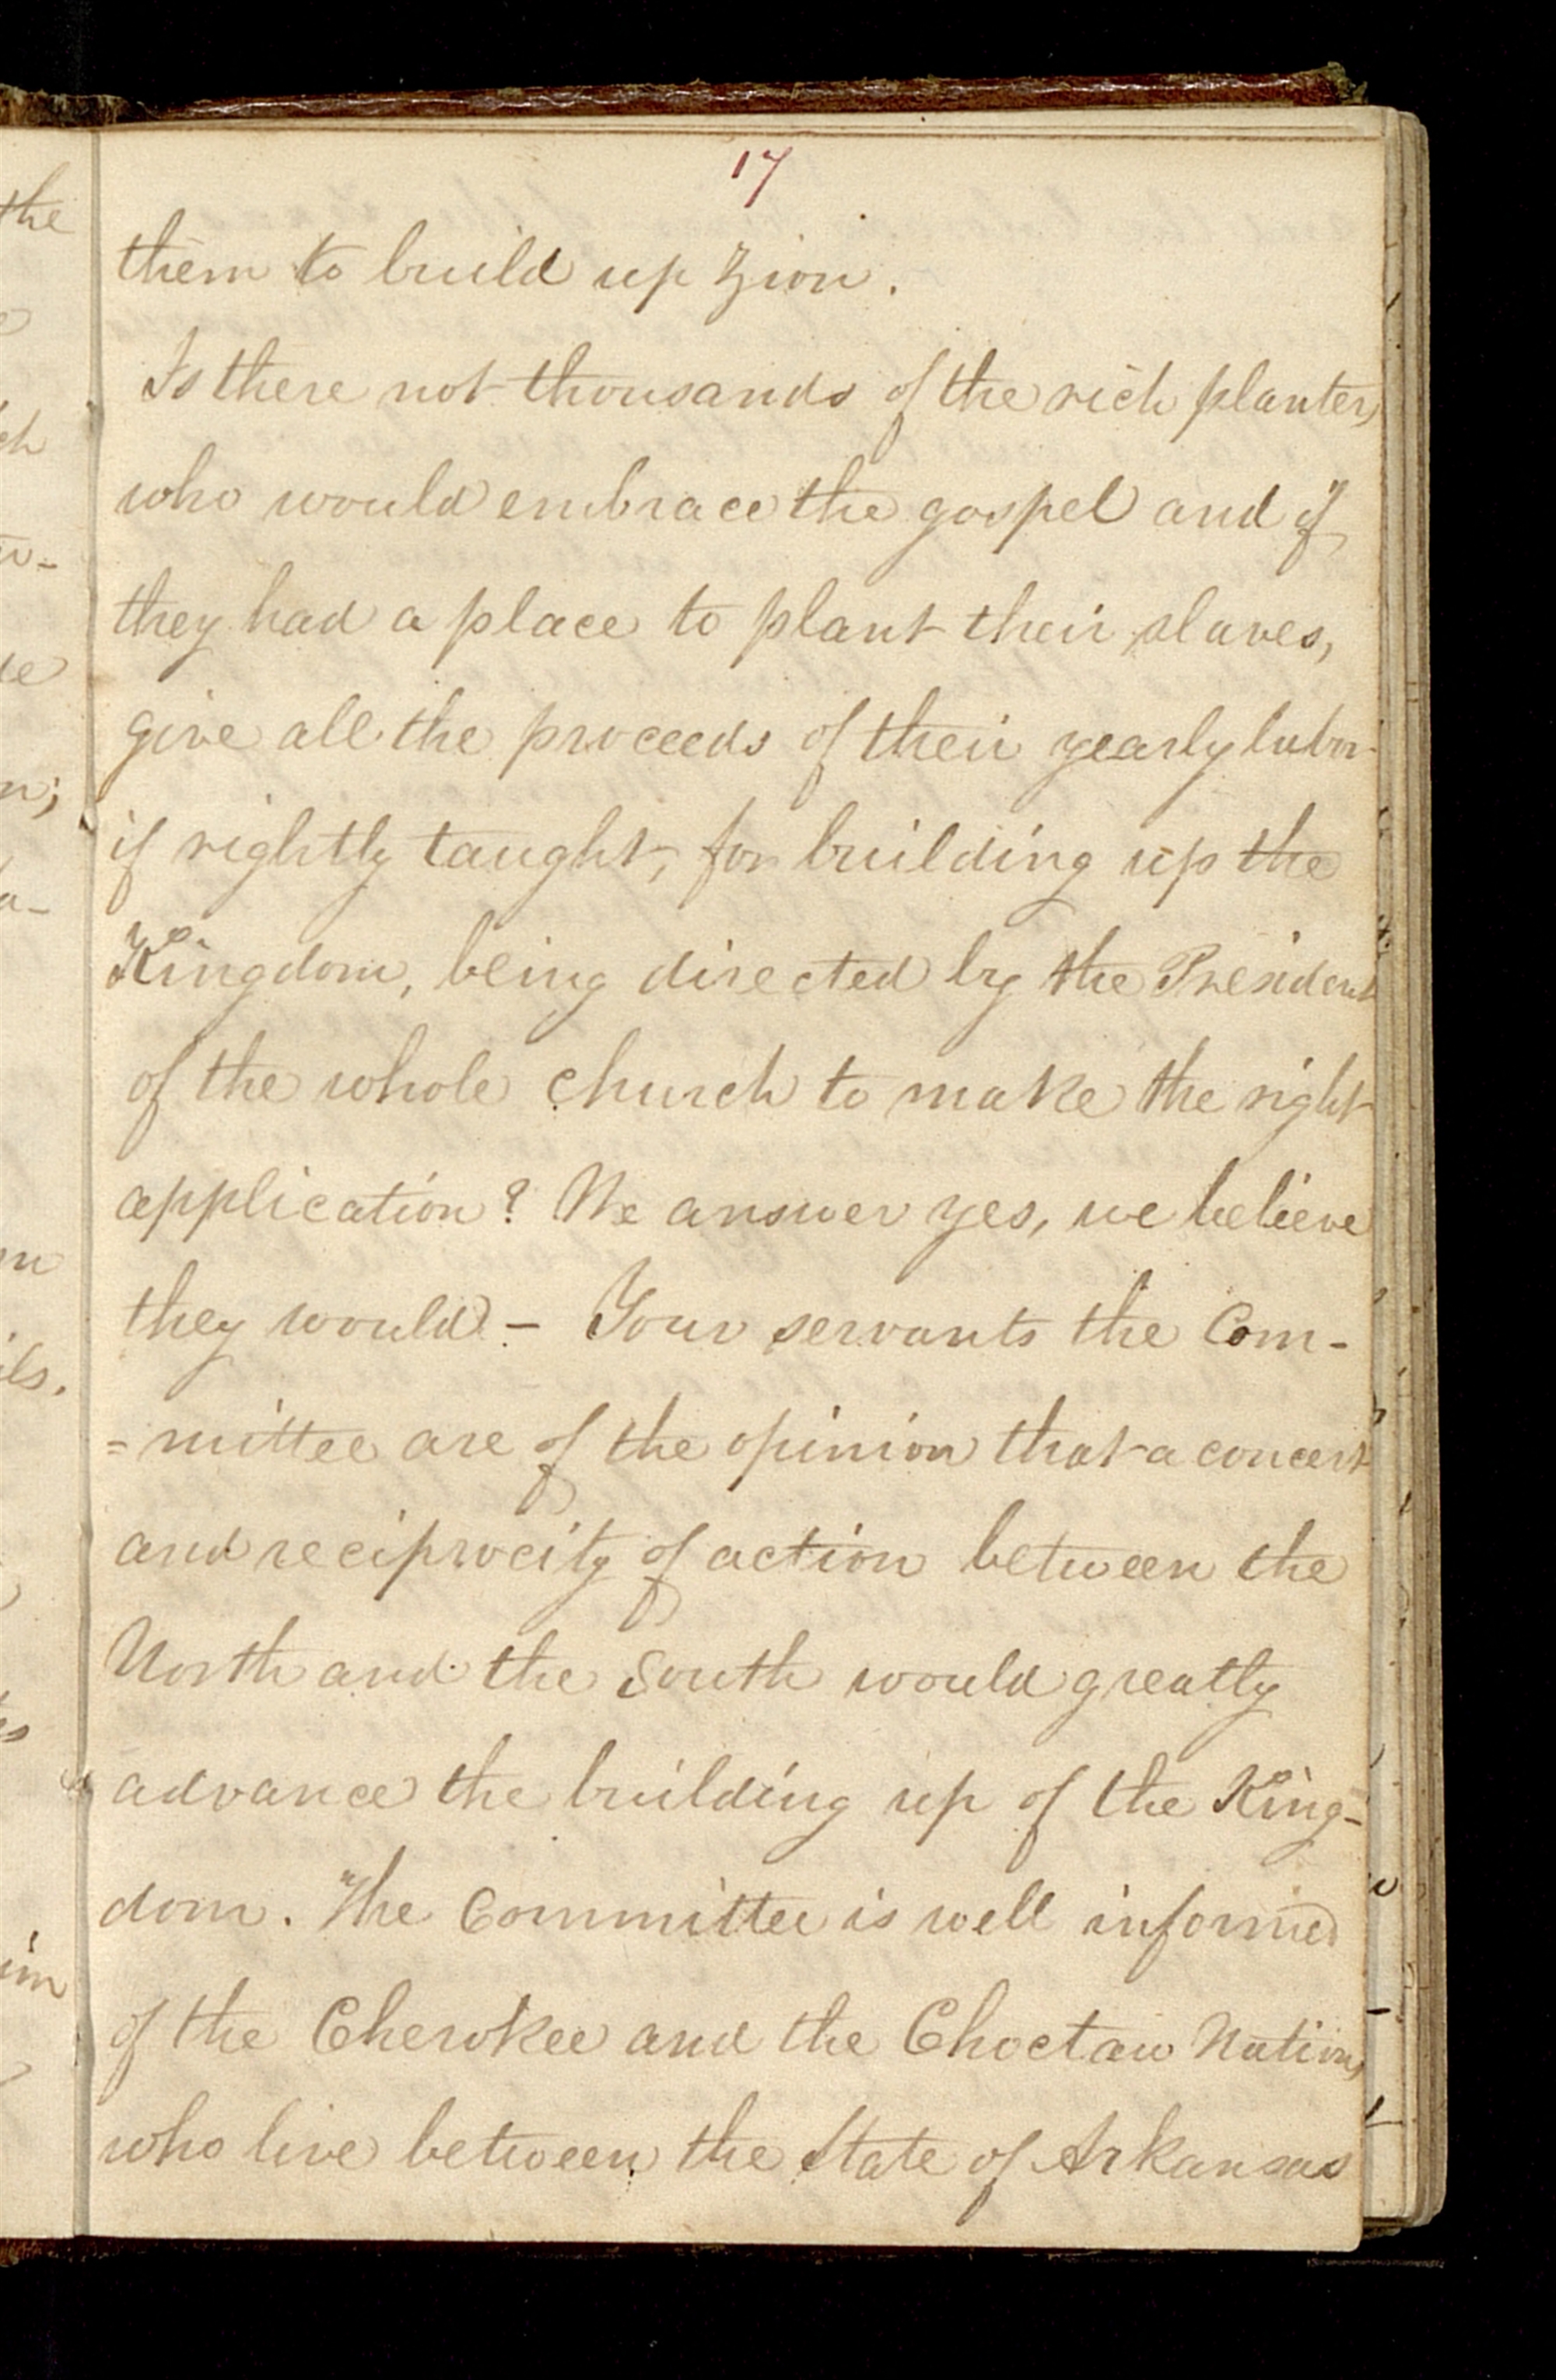 17
the
them to build up Zion.
Is there not thousands of the rich planters
who would embrace the gospel and if
they had a place to plant their slaves,
give all the proceeds of their yearly labor
if rightly taught, for building up the
Kingdom, being directed by the President
of the whole church to make the right
application? We answer yes, we believe
they would – Your servants the Com-
=mittee are of the opinion that a concert
and reciprocity of action between the
North and the South would greatly
advance the building up of the King-
dom. The Committee is well informed
of the Cherokee and the Choctaw Nations
who live between the State of Arkansas